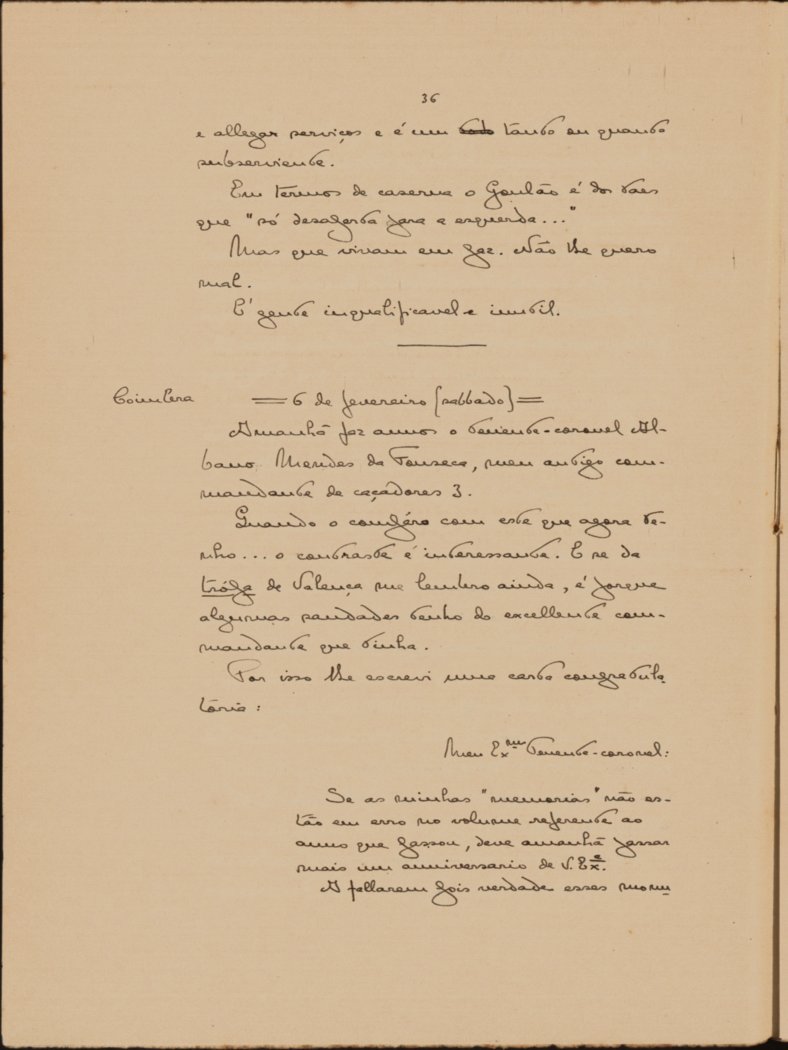 36
e allegar serviços e é um todo tanto ou quanto
subserviente.
Em termos de caserna o Goulão é dos taes
que "só desaperta para a esquerda..."
Mas que vivam em paz. Não lhe quero
mal.
E' gente inqualificavel e inutil.
Coimbra
= 6 de fevereiro [sabbado] =
Amanhã faz annos o tenente-coronel Al-
bano Mendes da Fonseca, meu antigo com-
mandante de caçadores 3.
Quando o compáro com este que agora te-
nho... o contraste é interessante. E se da
trópa de Valença me lembro ainda, é porque
algumas saudades tenho do excellente com-
mandante que tinha.
Por isso lhe escrevi uma carta congratula-
tória:
Meu Exmo Tenente-coronel:
Se as minhas "memorias" não es-
tão em erro no volume referente ao
anno que passou, deve amanhã passar
mais um anniversario de V. Exe.
A fallarem pois verdade esses